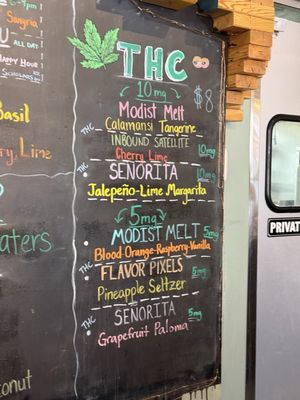 6-7pm
Sangria
ALL DAY!
Happy Hour!
Scholars
Basil
rry, Lime
aters
conut
THC
10mg
$8
Modist Melt
Calamansi Tangerine
THC INBOUND SATELLITE 10mg
Cherry Lime
THC SEÑORITA 10mg
Jalepeño-Lime Margarita
5mg
THC MODIST MELT 5mg
Blood-Orange-Raspberry-Vanilla
THC FLAVOR PIXELS 5mg
Pineapple Seltzer
THC SEÑORITA 5mg
Grapefruit Paloma
PRIVAT